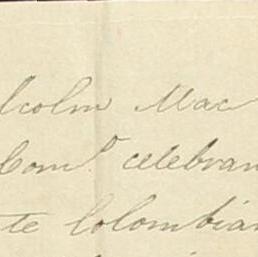 lcolm Mac
Comp. celebran
te Colombian